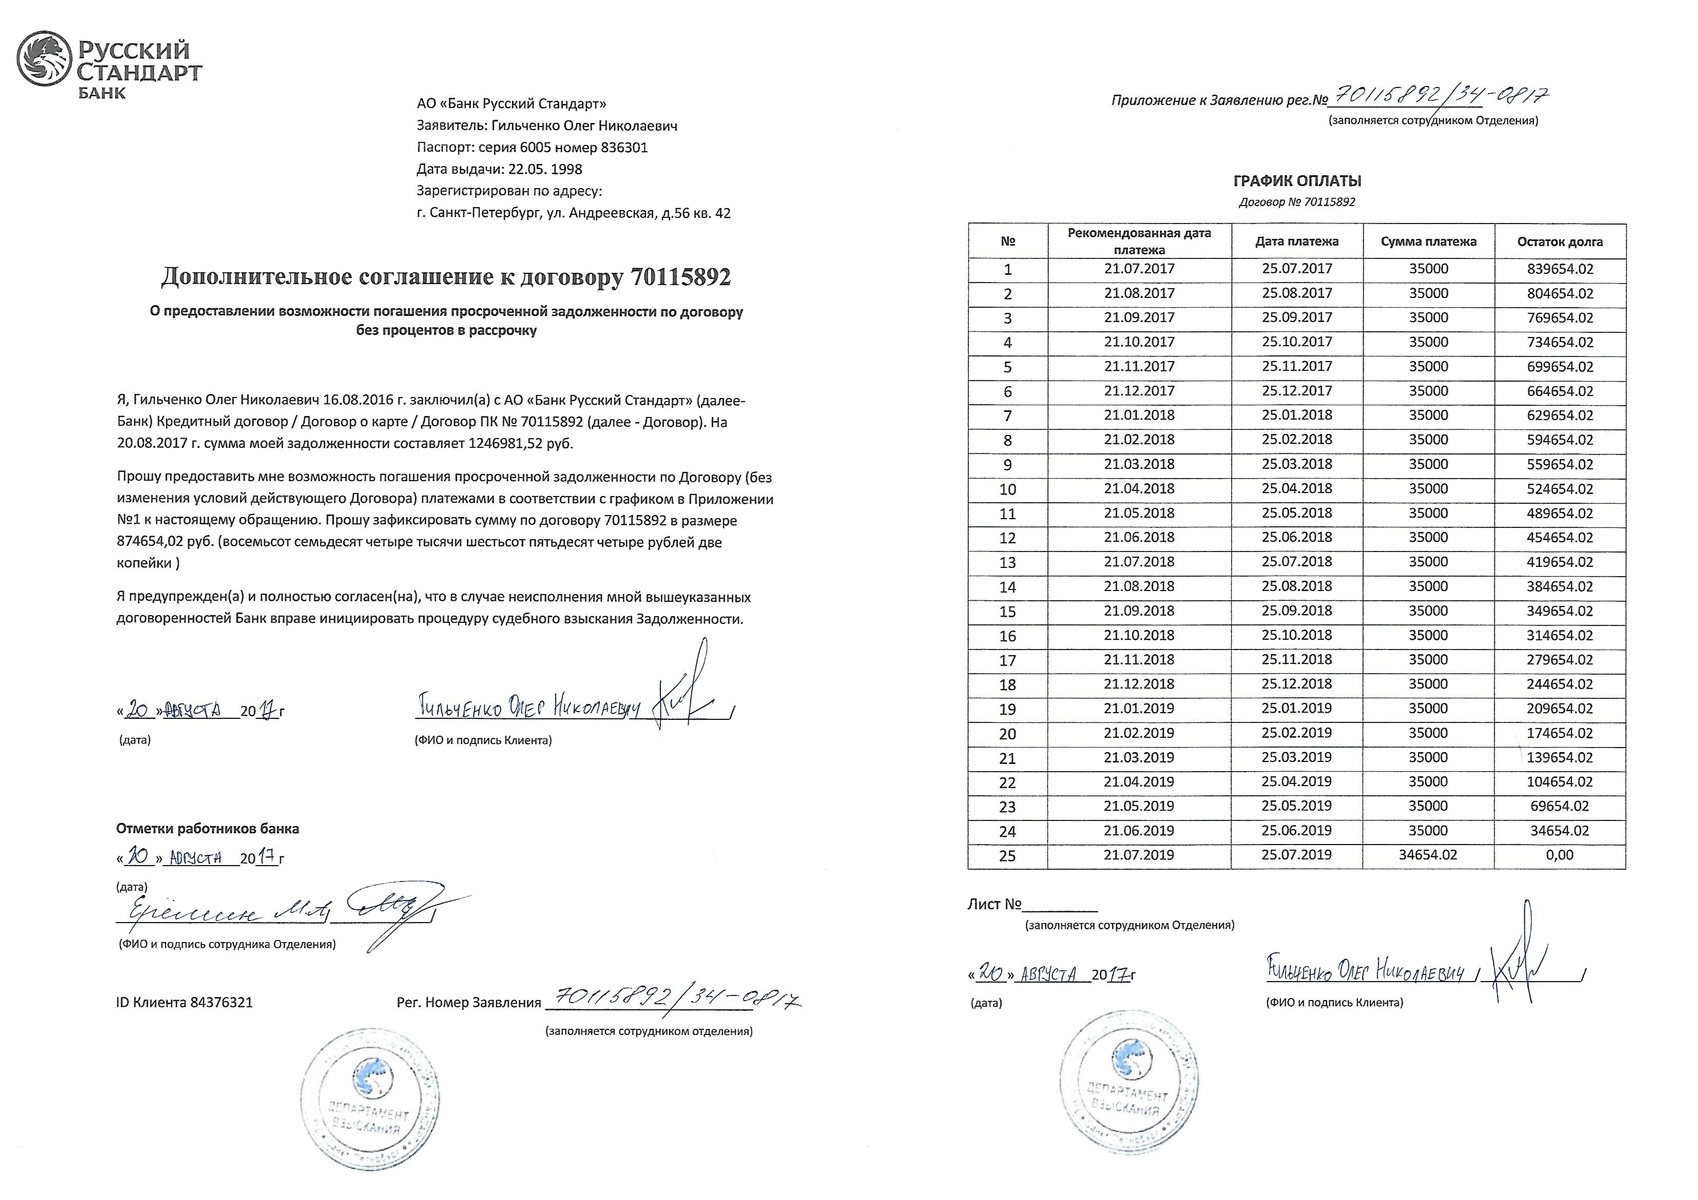 Русский
Стандарт
БАНК
АО «Банк Русский Стандарт»
Заявитель: Гильченко Олег Николаевич
Паспорт: серия 6005 номер 836301
Дата выдачи: 22.05. 1998
Зарегистрирован по адресу:
г. Санкт-Петербург, ул. Андреевская, д.56 кв. 42
Дополнительное соглашение к договору 70115892
О предоставлении возможности погашения просроченной задолженности по договору
без процентов в рассрочку
Я, Гильченко Олег Николаевич 16.08.2016 г. заключил(а) с АО «Банк Русский Стандарт» (далее-
Банк) Кредитный договор / Договор о карте / Договор ПК № 70115892 (далее - Договор). На
20.08.2017 г. сумма моей задолженности составляет 1246981,52 руб.
Прошу предоставить мне возможность погашения просроченной задолженности по Договору (без
изменения условий действующего Договора) платежами в соответствии с графиком в Приложении
№1 к настоящему обращению. Прошу зафиксировать сумму по договору 70115892 в размере
874654,02 руб. (восемьсот семьдесят четыре тысячи шестьсот пятьдесят четыре рублей две
копейки )
Я предупрежден(а) и полностью согласен(на), что в случае неисполнения мной вышеуказанных
договоренностей Банк вправе инициировать процедуру судебного взыскания Задолженности.
«20» АВГУСТА 2017г
Гильченко Олег Николаевич /
(дата)
(ФИО и подпись Клиента)
Отметки работников банка
«20» АВГУСТА 2017г
(дата)
Ерёмин М.А /
(ФИО и подпись сотрудника Отделения)
ID Клиента 84376321
Рег. Номер Заявления 70115892/34-0817
(заполняется сотрудником отделения)
ДЕПАРТАМЕНТ
ВЗЫСКАНИЯ
Приложение к Заявлению рег.№ 70115892/34-0817
(заполняется сотрудником Отделения)
ГРАФИК ОПЛАТЫ
Договор № 70115892
№ Рекомендованная дата платежа Дата платежа Сумма платежа Остаток долга
1 21.07.2017 25.07.2017 35000 839654.02
2 21.08.2017 25.08.2017 35000 804654.02
3 21.09.2017 25.09.2017 35000 769654.02
4 21.10.2017 25.10.2017 35000 734654.02
5 21.11.2017 25.11.2017 35000 699654.02
6 21.12.2017 25.12.2017 35000 664654.02
7 21.01.2018 25.01.2018 35000 629654.02
8 21.02.2018 25.02.2018 35000 594654.02
9 21.03.2018 25.03.2018 35000 559654.02
10 21.04.2018 25.04.2018 35000 524654.02
11 21.05.2018 25.05.2018 35000 489654.02
12 21.06.2018 25.06.2018 35000 454654.02
13 21.07.2018 25.07.2018 35000 419654.02
14 21.08.2018 25.08.2018 35000 384654.02
15 21.09.2018 25.09.2018 35000 349654.02
16 21.10.2018 25.10.2018 35000 314654.02
17 21.11.2018 25.11.2018 35000 279654.02
18 21.12.2018 25.12.2018 35000 244654.02
19 21.01.2019 25.01.2019 35000 209654.02
20 21.02.2019 25.02.2019 35000 174654.02
21 21.03.2019 25.03.2019 35000 139654.02
22 21.04.2019 25.04.2019 35000 104654.02
23 21.05.2019 25.05.2019 35000 69654.02
24 21.06.2019 25.06.2019 35000 34654.02
25 21.07.2019 25.07.2019 34654.02 0,00
Лист №
(заполняется сотрудником Отделения)
«20» АВГУСТА 2017г
Гильченко Олег Николаевич / /
(дата)
(ФИО и подпись Клиента)
ДЕПАРТАМЕНТ
ВЗЫСКАНИЯ